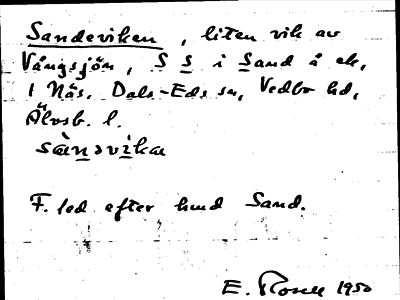 Sandeviken, liten vik av
Vångsjön, S S i Sand å ek,
1 Näs, Dals-Eds sn, Vedbo hd,
Älvsb. l.
sànsvika
F. led efter hmd Sand.
E. 1950